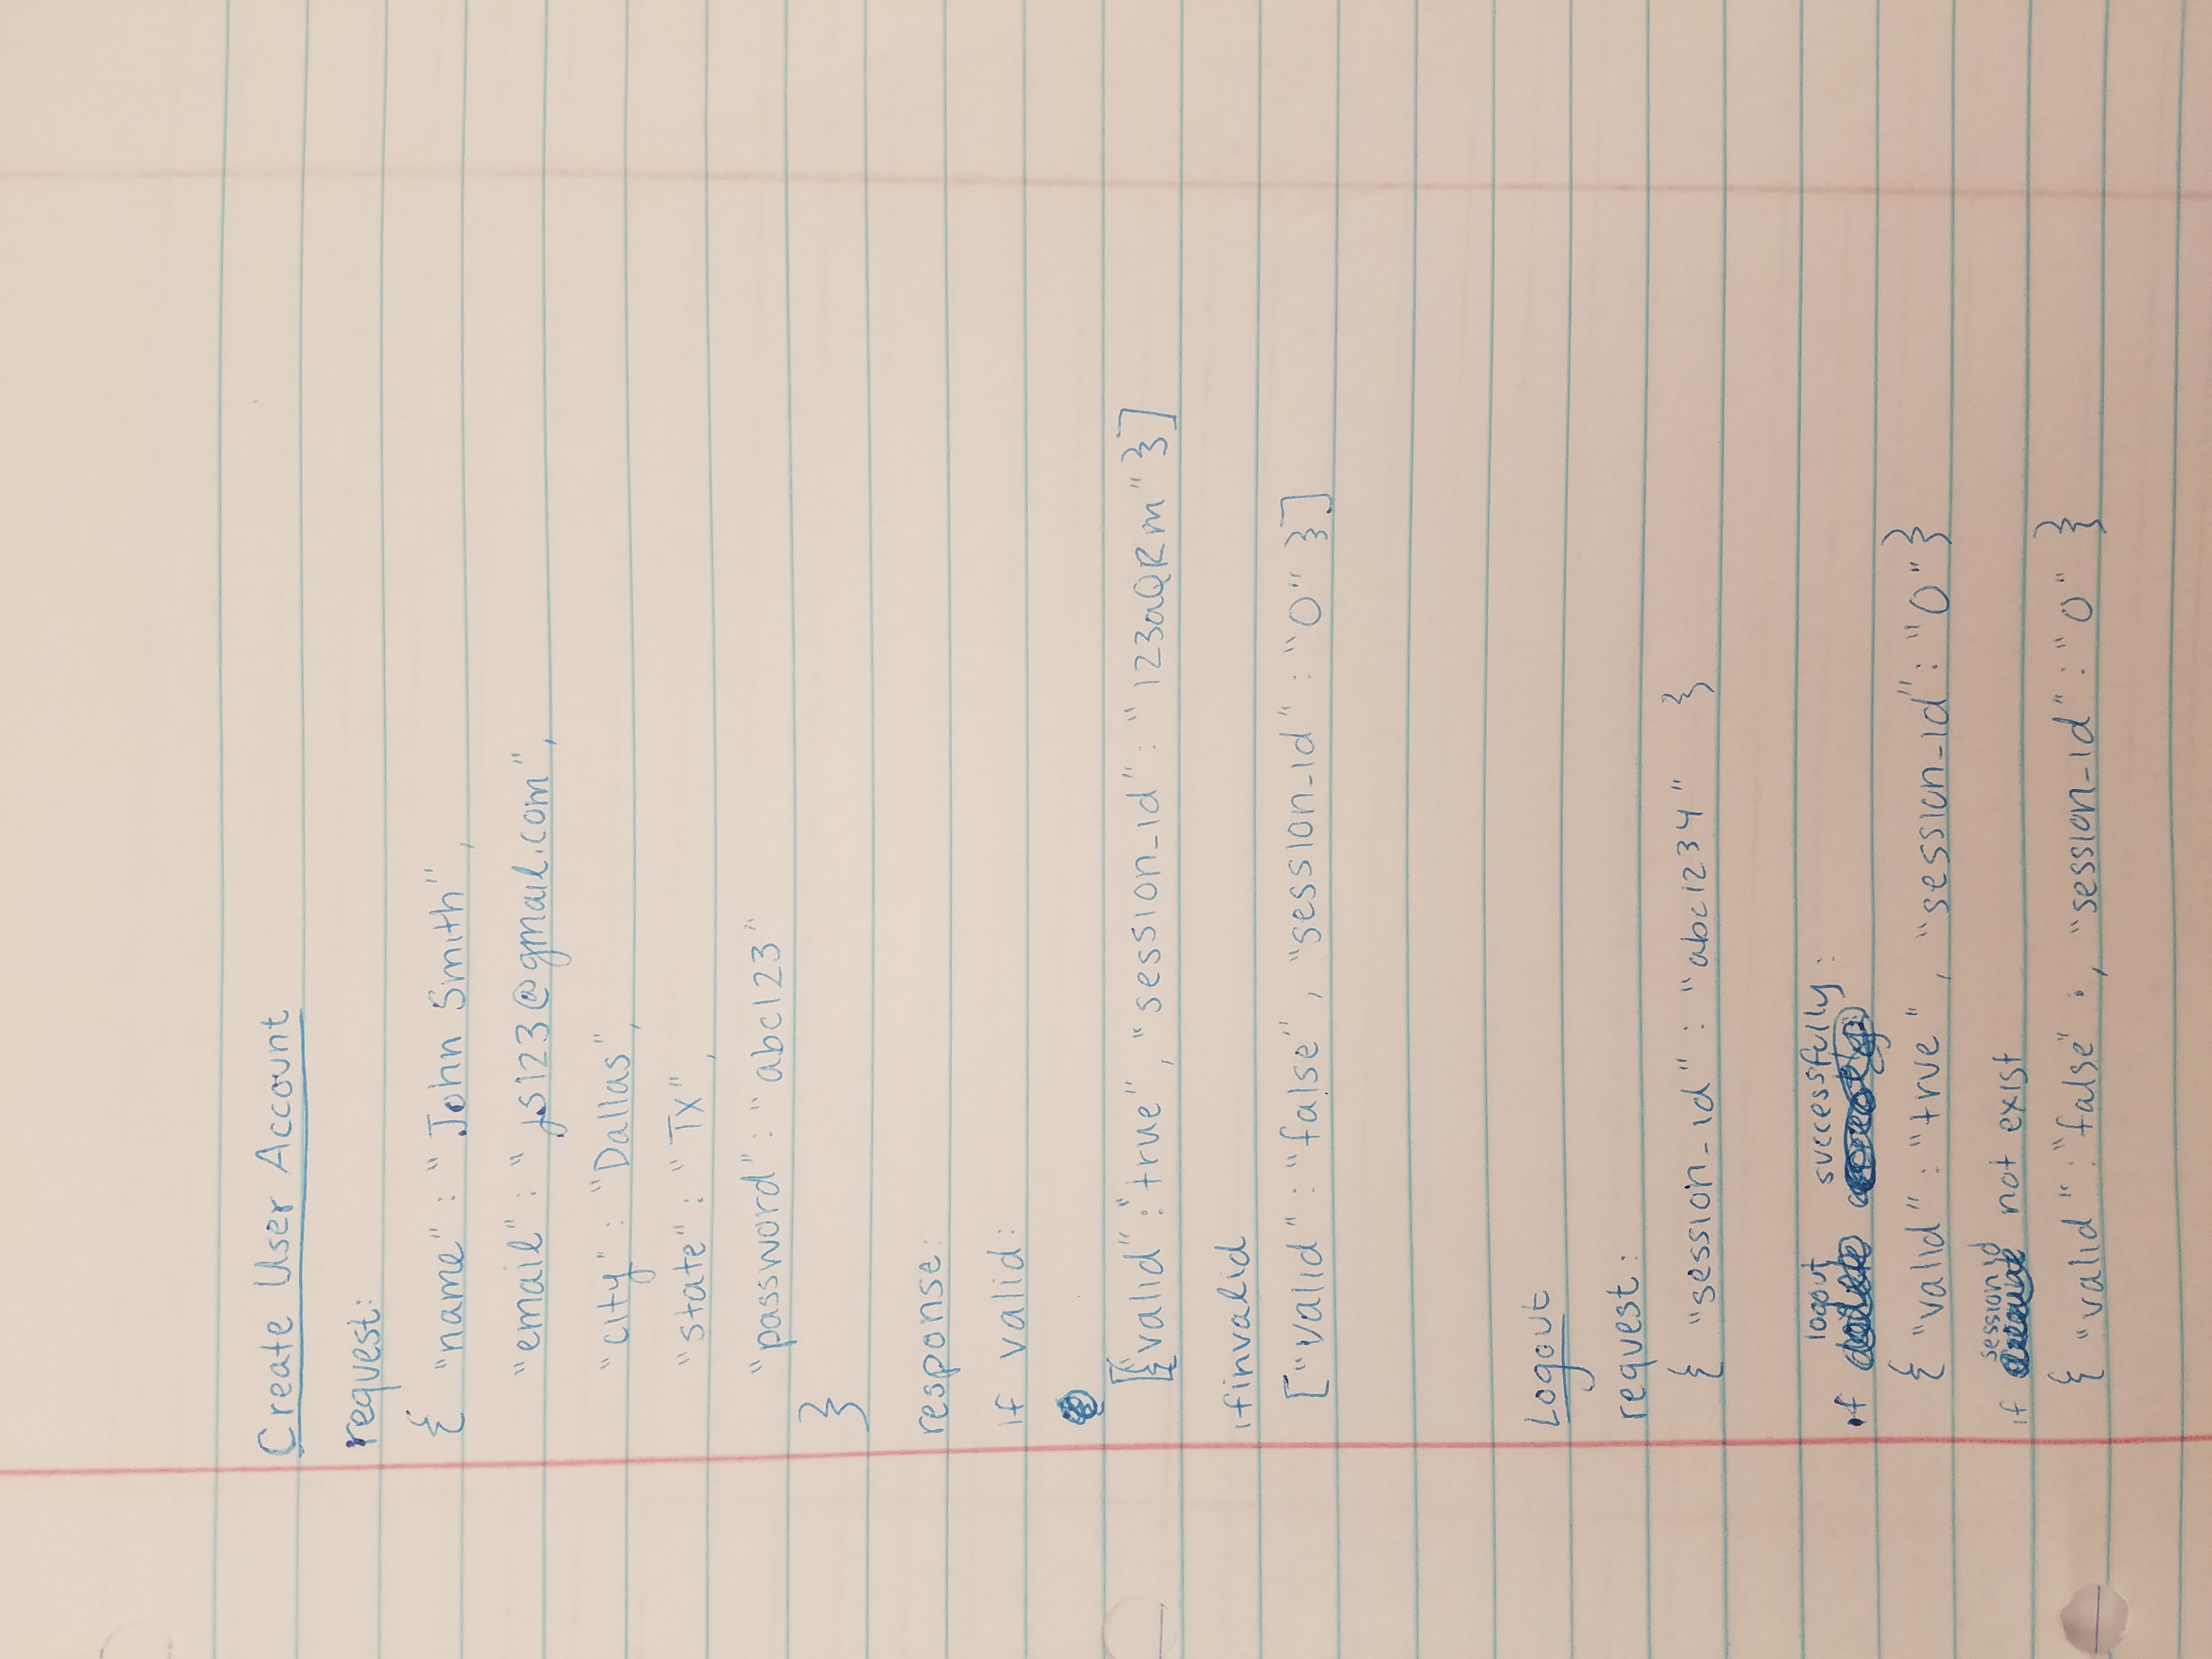 Create User Account
request:
{ "name" : "John Smith",
"email" : "js123@gmail.com",
"city" : "Dallas",
"state" : "TX",
"password" : "abc123"
}
response:
if valid:
[{"valid" : "true", "session_id" : "123aQRm" }]
if invalid
["valid" : "false", "session_id" : "0" }]
Logout
request:
{ "session_id" : "abc1234" }
if logout successfully:
{ "valid" : "true" , "session_id" : "0" }
if session id not exist
{ "valid" : "false" , "session_id" : "0" }